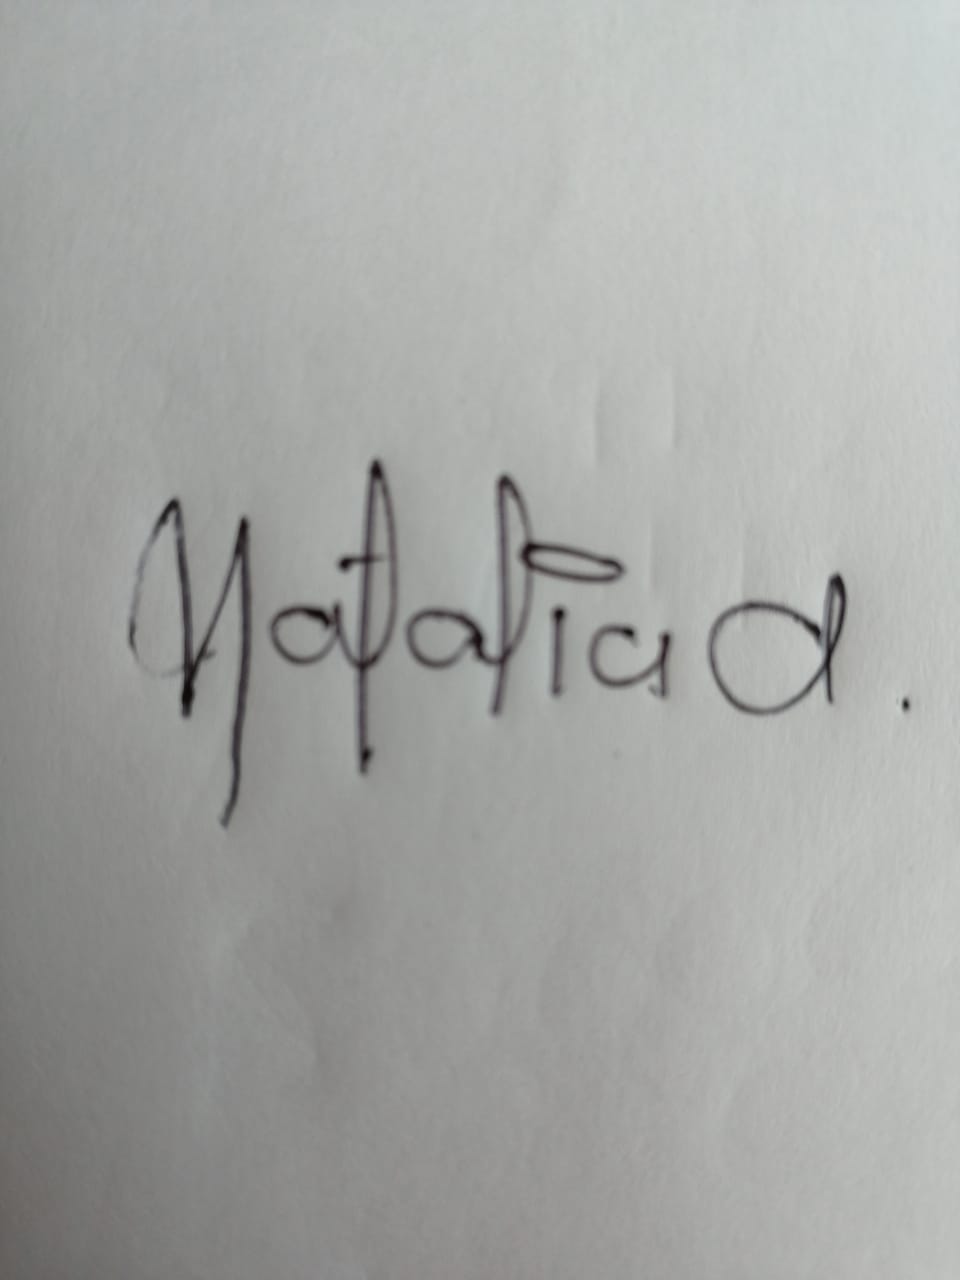 Natalia d.